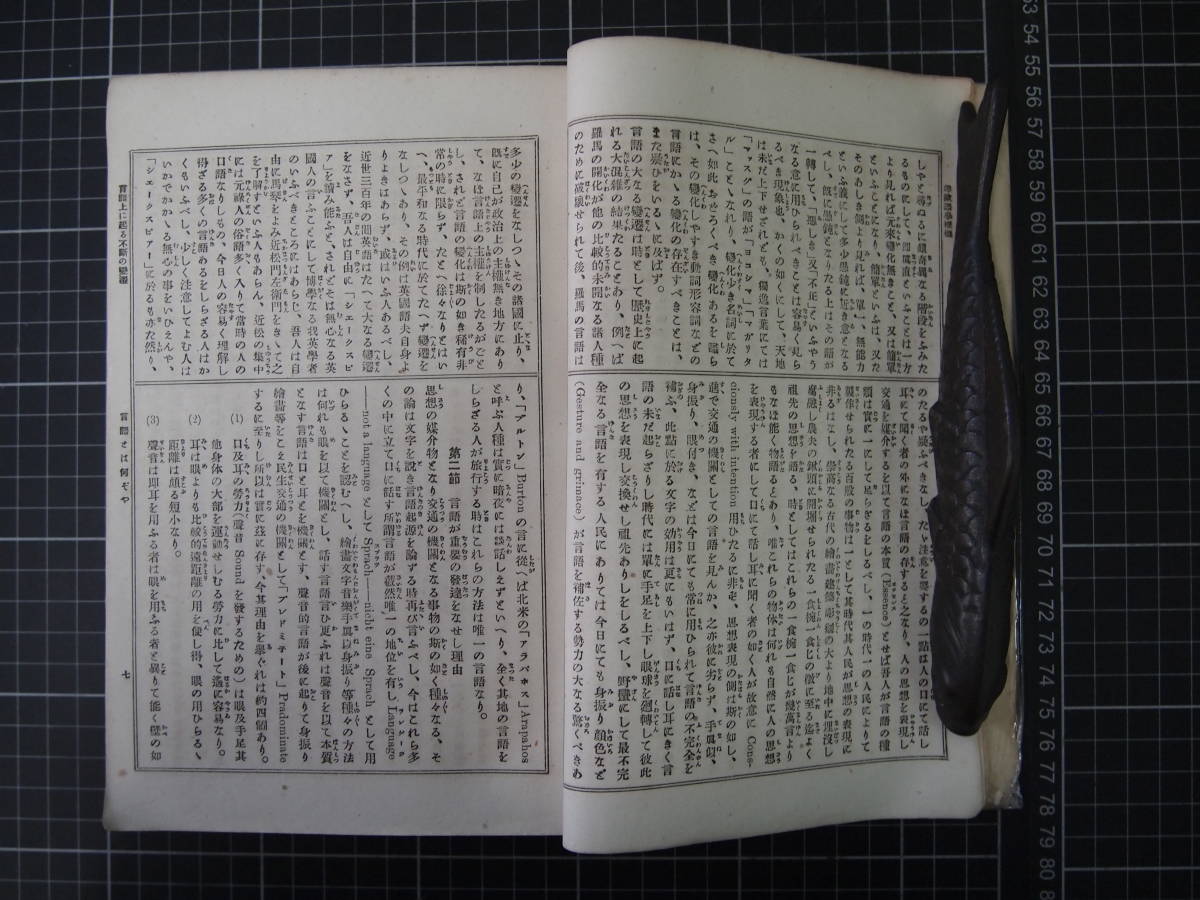 しやと尋ぬるに順當奇異なる階段をふみた
るものにして、即眞直といふことは一方
より見れば元來變化無きこと、又は簡單
といふことになり、簡單といふは、又た
そのあしき側より見れば、單一、無能力
といふ義にして多少愚鈍に近き意となる
べし、既に愚鈍となりたる上はその語が
一轉して、「惡しき」又「不正」といふやう
なる意に用ひらるべきことは容易く見ら
るべき現象也、かくの如くにして、天地
は未だ上下せざれども、獨逸言葉にては
「マッスグ」の語が「ヨコシマ」「マガリタ
ル」ことゝなれり、變化少き名詞に於て
さへ如此おそろくべき變化あるを鑑ら
は、その變化しやすき動詞形容詞などの
言語にかゝる變化の存在すべきことは、
また疑ひをいるゝに及ばず。
言語の大なる變遷は時として歷史上に起
れる大混雜の結果たることあり、例へば
羅馬の開化が他の比較的未開なる諸人種
のために破壞せられて後、羅馬の言語は
のたるや疑ふべきなし、たゞ注意を要するの一點は人の口にて話し
耳にて聞く者の外になほ言語の存すること之なり、人の思想を表現し
交通を媒介するを以て言語の本質(Essence)とせば吾人が言語の種
類は實に一にして足らざるをしるべし、一の時代一の人民によりて
製作せられたる百般の事物は一として其時代其人民が思想の表現に
非るはなし、崇高なる古代の繪畫建築彫刻の大より地中に埋沒し
腐敗し農夫の鍬頭に開堀せらたる一食椀一食匕の微に至る迄よく
祖先の思想を語る、時としてはこれらの一食椀一食匕が幾萬言より
もなほ能く物語るとあり、唯これらの物体は何れも自然に人の思想
を表現する者にして口にて話し耳に聞く者の如く人が故意に Cons-
ciously with intention 用ひたるに非ず、思想表現の側は斯の如し、
進で交通の機關としての言語を見んか、之亦彼に劣らず、手眞似、
身振り、眼付き、などは今日にても常に用ひられて言語の不完全を
補ふ、此點に於る文字の効用は更にもいはず、口に話し耳にきく言
語の未だ起らざりし時代には單に手足を上下し眼球を廻轉して彼此
の思想を表現し交換せし祖先ありしをしるべし、野蠻にして最不完
全なる言語を有する人民にありては今日にても身振り顏色など
(Gesture and grimace)が言語を補佐する勢力の大なる驚くべきあ
多少の變遷をなしつゝその諸國に止り、
既に自己が政治上の主權無き地方にあり
て、なほ言語上の主權を制したるがごと
し、されど言語の變化は斯の如き稀有非
常の時に限らず、たとへ徐々なりとはい
へ、最平和なる時代に於てたへず變遷を
なしつゝあり、その例は英國語夫自身よ
りよきはあらず、或はいふ人あるべし、
近世三百年の間英語はたへて大なる變遷
をなさず、吾人は自由に「シエークスピ
ア」を讀み能ふと、されどそは無心なる英
國人の言ふことにして博學なる我英學者
のいふべきところにはあらじ、吾人は自
由に馬琴をよみ近松門左衛門をきゝて之
を了解すといふ人もあらん、近松の集中
には元祿の俗語多く入りて當時の人の
口語なりしもの、今日人の容易く理解し
得ざる多くの言語あるをしらざる人はか
くもいふべし、少しく注意してよむ人は
いかでかかゝる無心の事をいひえんや、
「シエークスピアー」に於るも亦た然り、
り、「ブルトン」Burton の言に從へば北米の「アラパホス」Arapahos
と呼ぶ人種は實に暗夜には談話しえずといへり、全く其地の言語を
しらざる人が旅行する時はこれらの方法は唯一の言語なり。
第二節 言語が重要の發達をなせし理由
思想の媒介物となり交通の機關となる事物の斯の如く種々なる、そ
の論は文字を說き言語起源を論ずる時再び言ふべし、今はこれら多
くの中に立て口に話す所謂言語が截然唯一の地位を有し Language
—not a language として Sprach—nicht eine Sprach として用
ひらるゝことを認むべし、繪畫文字音樂手眞似身振り等種々の方法
は何れも眼を以て機關とし、話す言語ひとり更ふれは聲音を以て本質
となす言語は口と耳とを機關とす、聲音的言語が後に起りて身振り
繪畫等をこえ民生交通の機關として「プレドミテート」Pradominate
するに至りし所以は實に茲に存す、今其理由を擧ぐれは約四個あり。
(1) 口及耳の勞力(聲音 Sound を發するための)は眼及手足其
他身体の大部を運動せしむる勞力に比して遙に容易なり。
(2) 耳は眼よりも比較的遠距離の用を便し得、眼の用ひらるゝ
距離は頗る短小なり。
(3) 聲音は即耳を用ふる者は眼を用ふる者と異りて能く壁の如
言語上に起る不斷の變遷
言語とは何ぞや
七